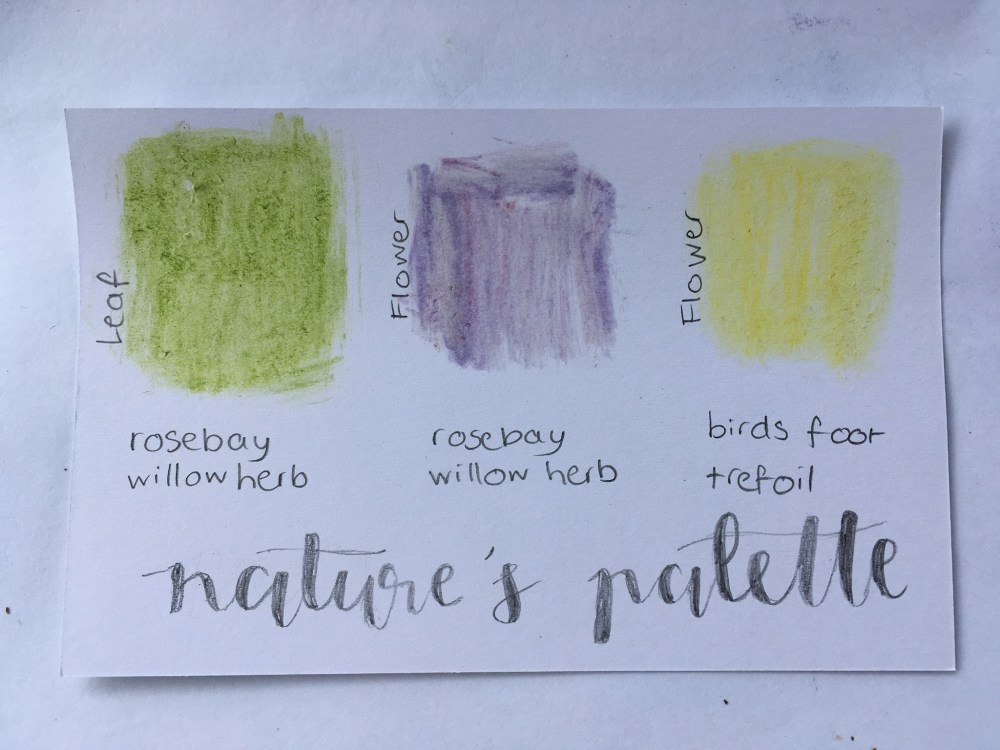 Leaf
Flower
Flower
rosebay
willow herb
rosebay
willow herb
birds foot
trefoil
nature's palette